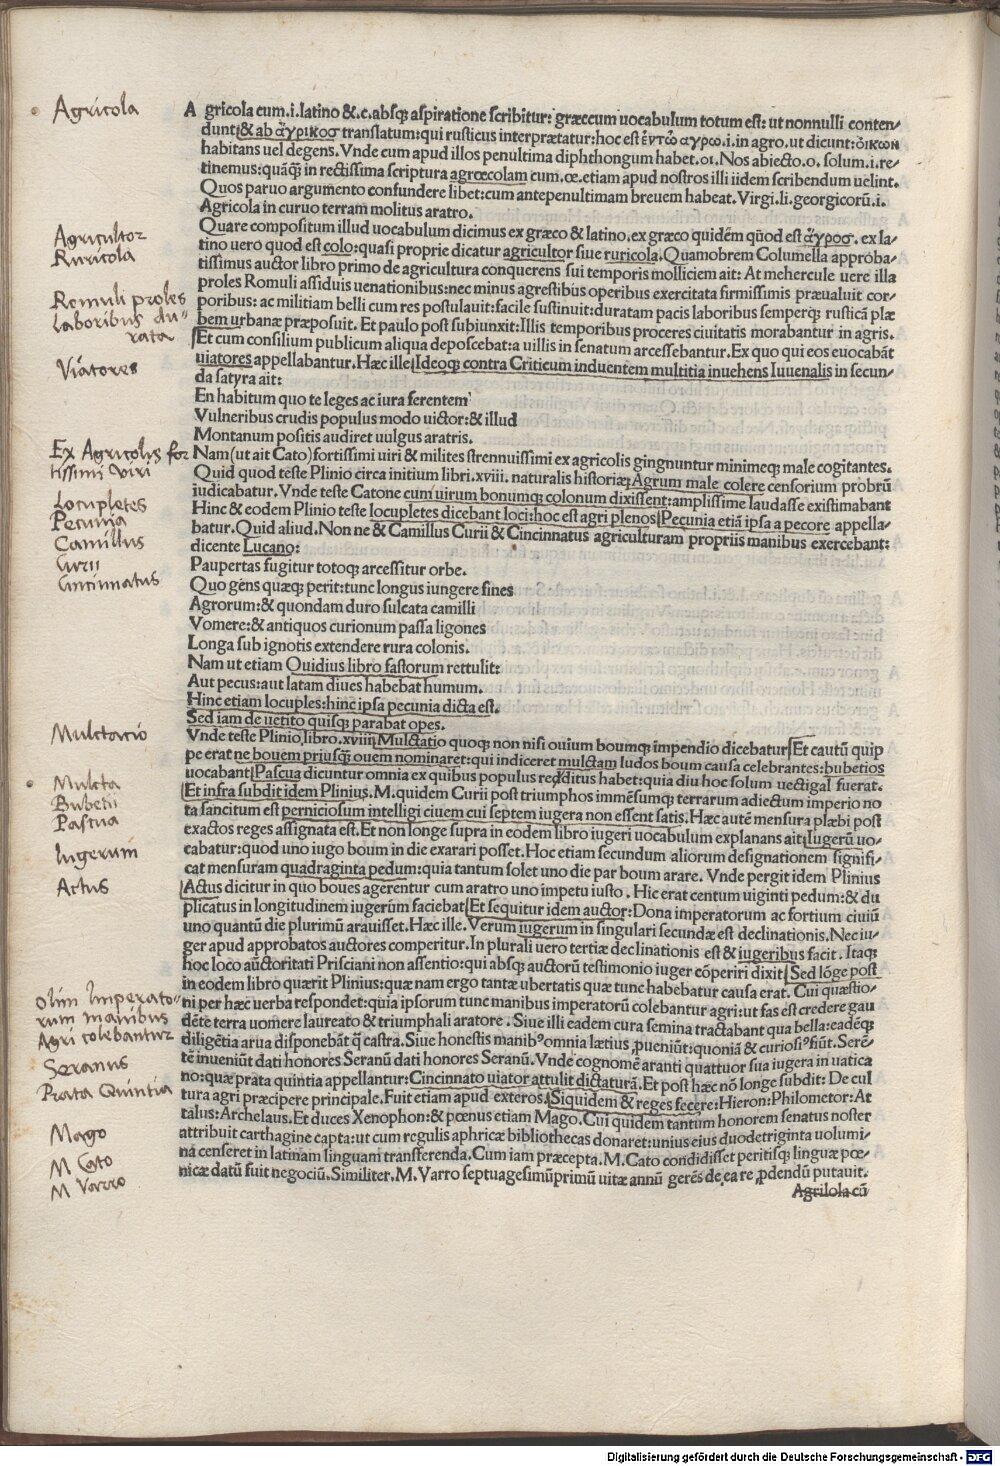 Agricola
Agricola cum.i.latino &.c.absqꝫ aspiratione scribitur: græcum uocabulum totum est: ut nonnulli conten/
dunt:& ab ἄγρικοσ translatum:qui rusticus interpræatur:hoc est ἐντῶ αγρω.i.in agro.ut dicunt:ὀικων
habitans uel degens. Vnde cum apud illos penultima diphthongum habet.oι. Nos abiecto.o. solum.i.re/
tinemus:quāqꝫ in rectissima scriptura agrœcolam cum.œ.etiam apud nostros illi iidem scribendum uelint.
Quos paruo argumento confundere libet:cum antepenultimam breuem habeat. Virgi.li.georgicorū.i.
Agricola in curuo terram molitus aratro.
Agricultor
Quare compositum illud uocabulum dicimus ex græco & latino.ex græco quidém qūod est ἄγροσ. ex la/
Ruricola
tino uero quod est colo:quasi proprie dicatur agricultor siue ruricola. Quamobrem Columella approba/
tissimus auctor libro primo de agricultura conquerens sui temporis molliciem ait: At mehercule uere illa
Romuli proles
proles Romuli assiduis uenationibus:nec minus agrestibus operibus exercitata firmissimis præualuit cor/
laboribus du-
poribus: ac militiam belli cum res postulauit:facile sustinuit:duratam pacis laboribus semperqꝫ rusticā plæ
rata
bem urbanæ præposuit. Et paulo post subiunxit: Illis temporibus proceres ciuitatis morabantur in agris.
Et cum consilium publicum aliqua deposcebat:a uillis in senatum arcessebantur. Ex quo qui eos euocabāt
Viatores
uiatores appellabantur. Hæc ille. Ideoqꝫ contra Criticum induentem multitia inuehens Iuuenalis in secun/
da satyra ait:
En habitum quo te leges ac iura ferentem
Vulneribus crudis populus modo uictor:& illud
Montanum positis audiret uulgus aratris.
Ex Agricolis for
Nam(ut ait Cato)fortissimi uiri & milites strennuissimi ex agricolis gingnuntur minimeqꝫ male cogitantes.
tissimi viri
Quid quod teste Plinio circa initium libri.xviii. naturalis historiæ: Agrum male colere censorium probrū
iudicabatur. Vnde teste Catone cum uirum bonumqꝫ colonum dixissent:amplissime laudasse existimabant
Locupletes
Hinc & eodem Plinio teste locupletes dicebant loci:hoc est agri plenos. Pecunia etiā ipsa a pecore appella/
Pecunia
batur. Quid aliud. Non ne & Camillus Curii & Cincinnatus agriculturam propriis manibus exercebant:
Camillus
dicente Lucano:
Curii
Paupertas fugitur totoqꝫ arcessitur orbe.
Cincinnatus
Quo gens quæqꝫ perit:tunc longus iungere fines
Agrorum:& quondam duro sulcata camilli
Vomere:& antiquos curionum passa ligones
Longa sub ignotis extendere rura colonis.
Nam ut etiam Ouidius libro fastorum rettulit:
Aut pecus:aut latam diues habebat humum.
Hinc etiam locuples:hinc ipsa pecunia dicta est.
Sed iam de uetito quisqꝫ parabat opes.
Multatio
Vnde teste Plinio.libro.xviii. Multatio quoqꝫ non nisi ouium boumqꝫ impendio dicebatur. Et cautū quip
pe erat ne bouem priusqꝫ ouem nominaret:qui indiceret mulctam ludos boum causa celebrantes:bubetios
Mulcta
uocabant. Pascua dicuntur omnia ex quibus populus redditus habet:quia diu hoc solum uectigal fuerat.
Bubetii
Et infra subdit idem Plinius. M.quidem Curii post triumphos immēsumqꝫ terrarum adiectum imperio no
Pascua
ta sancitum est perniciosum intelligi ciuem cui septem iugera non essent satis. Hæc autē mensura plæbi post
exactos reges assignata est. Et non longe supra in eodem libro iugeri uocabulum explanans ait: Iugerū uo/
Iugerum
cabatur:quod uno iugo boum in die exarari posset. Hoc etiam secundum aliorum designationem signifi/
cat mensuram quadraginta pedum:quia tantum solet uno die par boum arare. Vnde pergit idem Plinius
Actus
Actus dicitur in quo boues agerentur cum aratro uno impetu iusto. Hic erat centum uiginti pedum:& du
plicatus in longitudinem iugerūm faciebat. Et sequitur idem auctor: Dona imperatorum ac fortium ciuiū
uno quantū die plurimū arauisset. Hæc ille. Verum iugerum in singulari secundæ est declinationis. Nec iu/
ger apud approbatos auctores comperitur. In plurali uero tertiæ declinationis est & iugeribus facit. Itaqꝫ
hoc loco auctoritati Prisciani non assentio:qui absqꝫ auctorū testimonio iuger cōperiri dixit. Sed lōge post
in eodem libro quærit Plinius:quæ nam ergo tantæ ubertatis quæ tunc habebatur causa erat. Cui quæstio/
olim Imperato-
ni per hæc uerba respondet:quia ipsorum tunc manibus imperatorū colebantur agri:ut fas est credere gau
rum manibus
dēte terra uomere laureato & triumphali aratore. Siue illi eadem cura semina tractabant qua bella:eadēqꝫ
Agri colebantur
diligētia arua disponebāt q̄ castra. Siue honestis manibꝰ omnia lætius ꝓueniūt:quoniā & curiosiꝰ fiūt. Serē/
Seranus
tē inueniūt dati honores Seranū dati honores Seranū. Vnde cognomē aranti quattuor sua iugera in uatica
no:quæ prata quintia appellantur: Cincinnato uiator attulit dictaturā. Et post hæc nō longe subdit: De cul
Prata Quintia
tura agri præcipere principale. Fuit etiam apud exteros. Siquidem & reges fecere: Hieron: Philometor: At
talus: Archelaus. Et duces Xenophon:& pœnus etiam Mago. Cui quidem tantum honorem senatus noster
Mago
attribuit carthagine capta:ut cum regulis aphricæ bibliothecas donaret:unius eius duodetriginta uolumi/
M Cato
na censeret in latinam linguam transferenda. Cum iam præcepta. M. Cato condidisset peritisqꝫ linguæ pœ/
M Varro
nicæ datū fuit negociū. Similiter. M. Varro septuagesimūprimū uitæ annū gerēs de ea re ꝓdendū putauit.
Agrilola cū
Digitalisierung gefördert durch die Deutsche Forschungsgemeinschaft - DFG